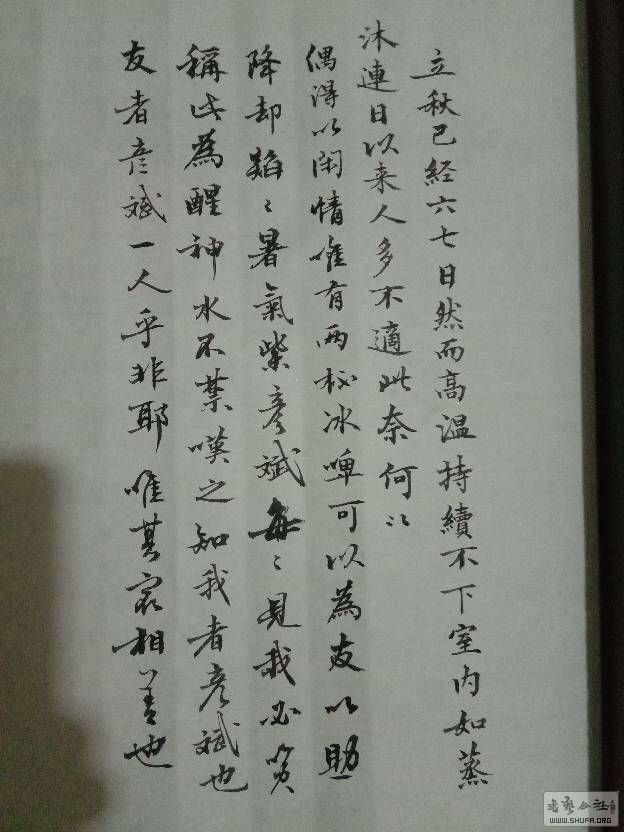 立秋已经六七日然而高温持續不下室内如蒸
沐連日以来人多不適此奈何〻
偶得以闲情唯有两秘冰啤可以為友以助
降却蹈〻暑氣紫彦斌每〻見我必笑
稱此為醒神水不禁嘆之知我者彦斌也
友者彦斌一人乎非耶唯其最相善也
WWW.SHUFA.ORG